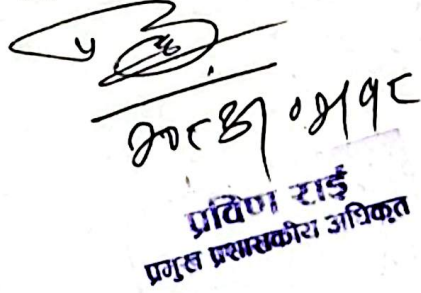 २०८३।०२।१८
प्रविण राई
प्रमुख प्रशासकीय अधिकृत